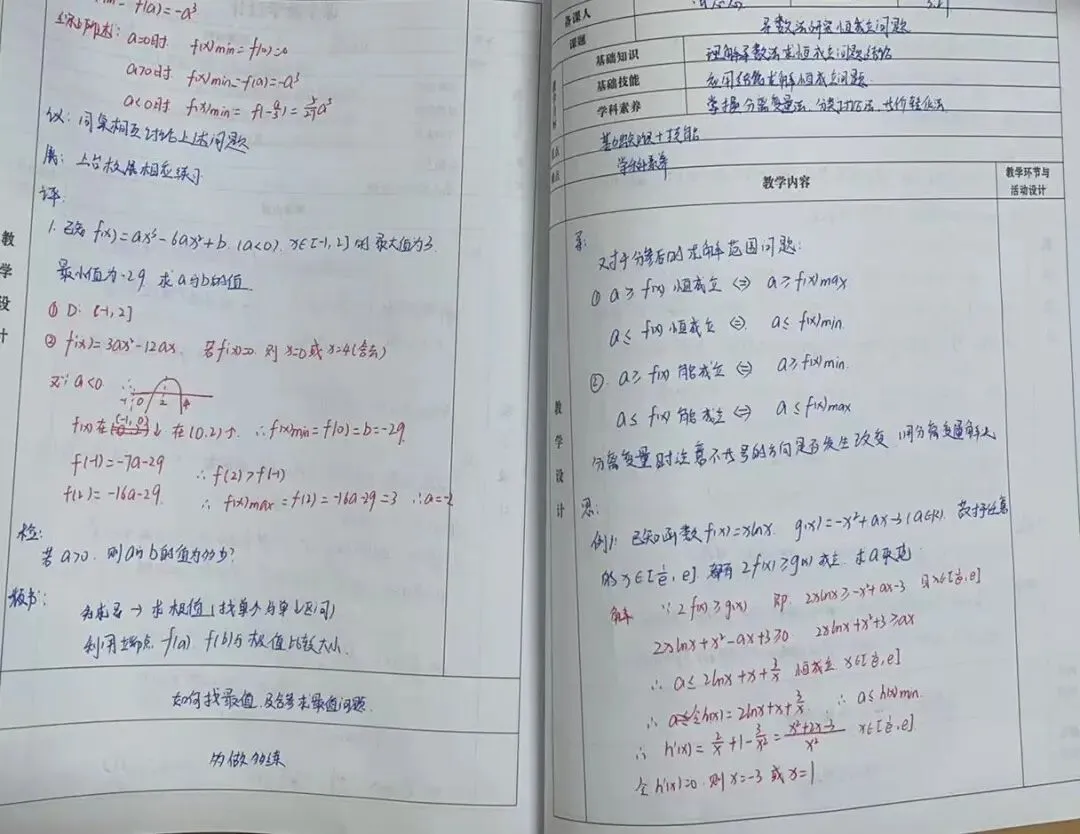 f(a)=-a³
综上所述: a=0时 f(x)min=f(0)=0
a>0时 f(x)min=f(a)=-a³
a<0时 f(x)min=f(-a/3)=5/27a³
议: 同桌相互讨论上述问题
展: 上台板展相应练习
评:
1. 已知 f(x)=ax³-6ax²+b (a<0) x∈[-1,2] 的最大值为3.
最小值为-29 求a与b的值
① D: [-1,2]
② f'(x)=3ax²-12ax 若f'(x)=0 则x=0或x=4(舍去)
又∵a<0 -1 0 2 4
f(x)在(-1,0)↓ 在(0,2)↑ ∴f(x)min=f(0)=b=-29
f(-1)=-7a-29 ∴f(2)>f(-1)
f(2)=-16a-29 ∴f(x)max=f(2)=-16a-29=3 ∴a=-2
检:
若a>0 则a与b的值为多少?
板书:
先求导→求极值(找单个与单↓区间)
利用端点 f(a) f(b)与极值比较大小
如何找最值 及含参求最值问题
多做多练
教
学
设
计
备课人
课题 导数法研究恒成立问题
基础知识 理解导数法求恒成立问题的结论
基础技能 应用结论求解恒成立问题
学科素养 掌握分离变量法、分类讨论法、等价转化法
基础知识+技能
学科素养
教学内容
教学环节与
活动设计
教
学
设
计
导:
对于分参后的求解范围问题:
① a≥f(x)恒成立 ⇔ a≥f(x)max
a≤f(x)恒成立 ⇔ a≤f(x)min
② a≥f(x)能成立 ⇔ a≥f(x)min
a≤f(x)能成立 ⇔ a≤f(x)max
分离变量时注意不等号的方向是否发生改变
思:
例1: 已知函数f(x)=xlnx g(x)=-x²+ax-3(a∈R) 若对于任意
的x∈[1/e,e] 都有 2f(x)≥g(x)成立 求a取范
解 ∵2f(x)≥g(x) 即 2xlnx≥-x²+ax-3 且x∈[1/e,e]
2xlnx+x²-ax+3≥0 2xlnx+x²+3≥ax
∴a≤2lnx+x+3/x 恒成立 x∈[1/e,e]
∴令h(x)=2lnx+x+3/x ∴a≤h(x)min
∴h'(x)=2/x+1-3/x²=(x²+2x-3)/x² x∈[1/e,e]
令h'(x)=0 则x=-3或x=1